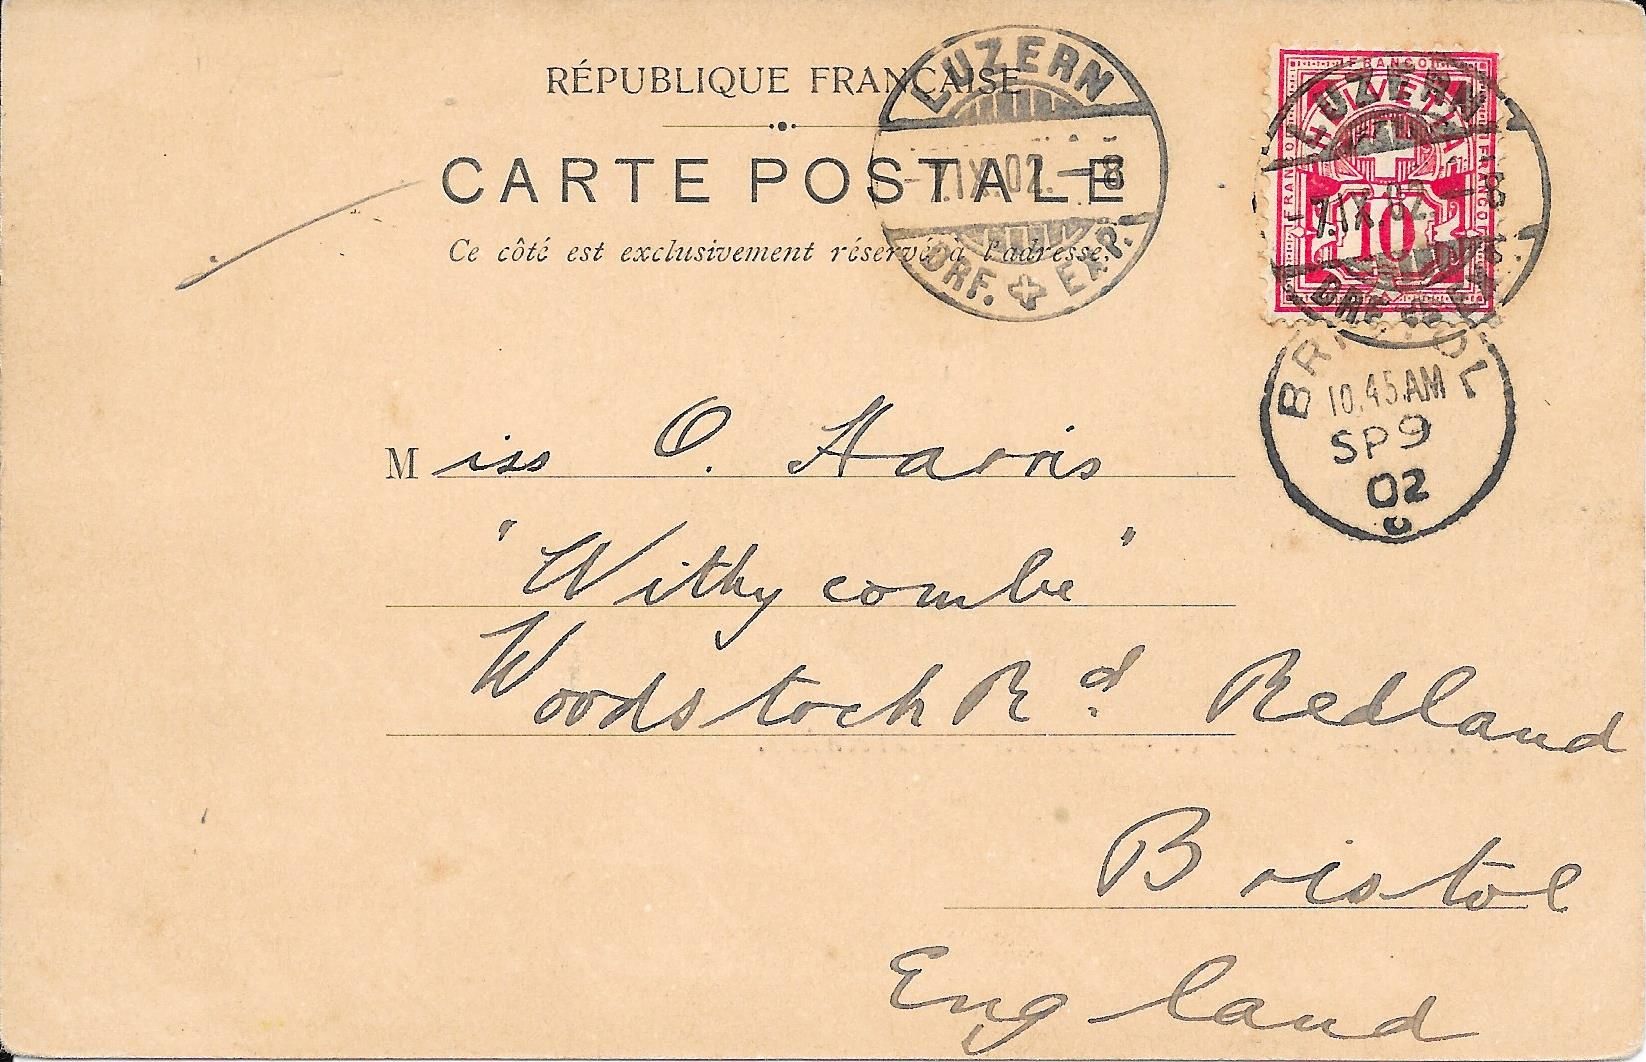 RÉPUBLIQUE FRANÇAISE
CARTE POSTALE
Ce côté est exclusivement réservé à l'adresse.
LUZERN
7.IX.02.–8
BRF. EXP.
FRANCO
HELVETIA
FRANCO
FRANCO
10
LUZERN
7.IX.02.–8
BRF. EXP.
BRISTOL
10.45.AM
SP 9
02
Miss O. Harris
"Withycombe"
Woodstock Rd. Redland
Bristol
England